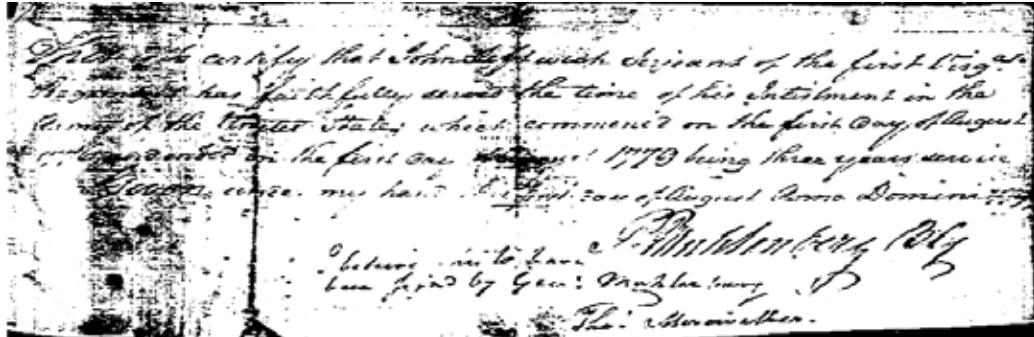 certify that John Leftwich Serjeant of the first Virga.
Regement has faithfully served the time of his Intistment in the
Army of the United States which commenc'd on the first Day of August
and ended on the first Day August 1779 being three years servic
Given under my hand this first Day of August Anno Domini
P. Muhlenberg BG
I beleive to have
been sign'd by Genl: Muhlenburg
Tho: Meriwether.